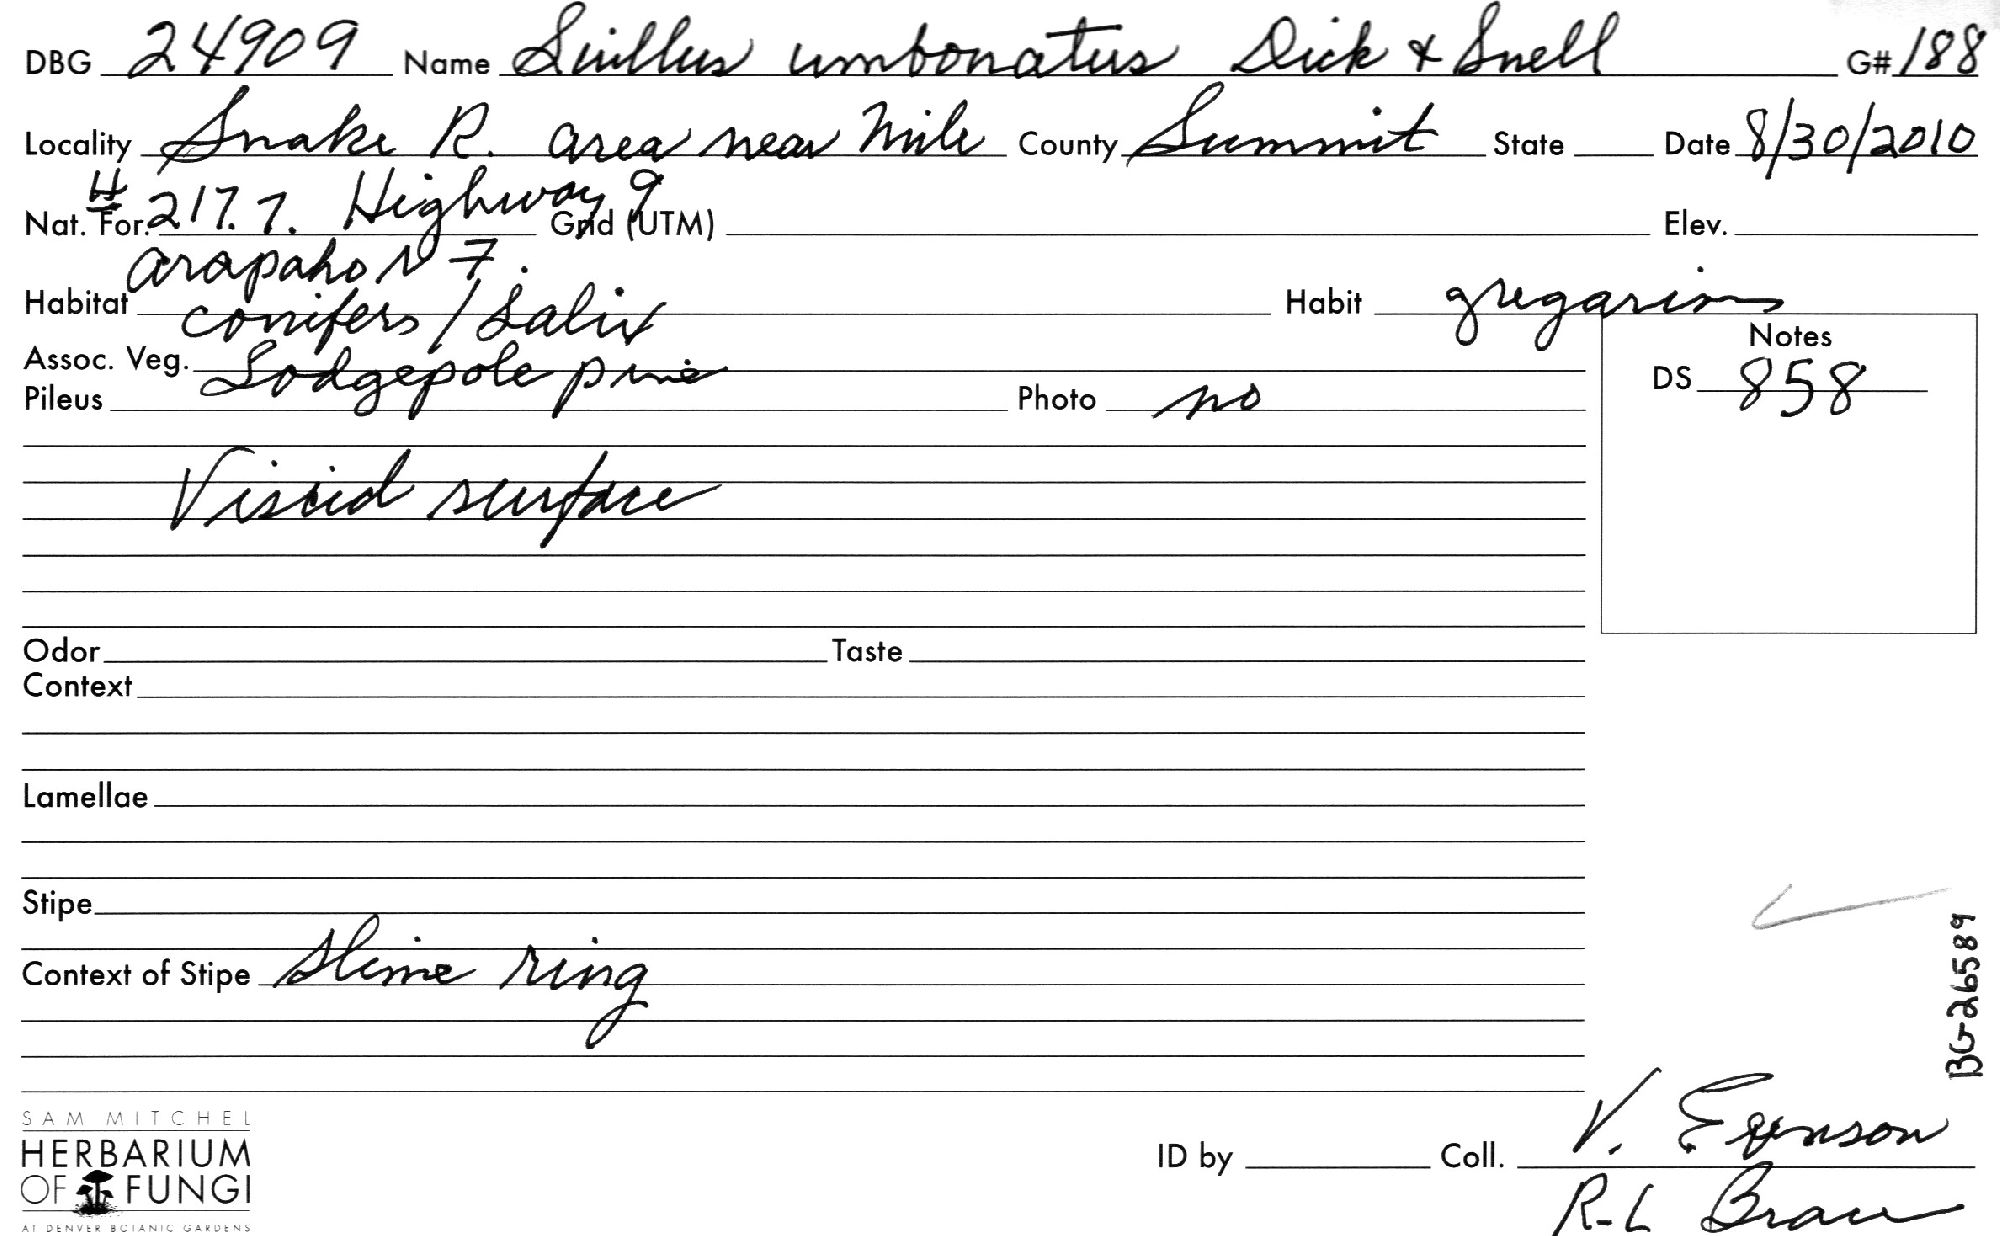 DBG 24909 Name Suillus umbonatus Dick & Snell G# 188
Locality Snake R. area near Mile County Summit State Date 8/30/2010
Nat. For. # 217.7. Highway 9 Grid (UTM) Elev.
Arapaho N F.
Habitat conifers / Salix Habit gregarious
Notes
Assoc. Veg. Lodgepole pine
DS 858
Pileus Photo no
Viscid surface
Odor Taste
Context
Lamellae
Stipe
Context of Stipe slime ring
BG-26589
SAM MITCHEL
HERBARIUM
OF FUNGI
AT DENVER BOTANIC GARDENS
ID by Coll. V. Evenson
R-L